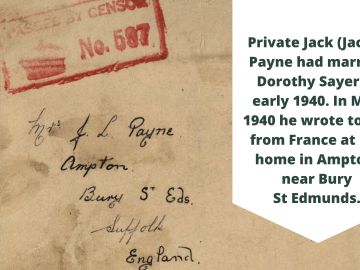 PASSED BY CENSOR
No. 587
Mrs J. L. Payne
Ampton.
Bury St Eds.
Suffolk
England.
Private Jack (Jac
Payne had marr
Dorothy Sayer
early 1940. In M
1940 he wrote to
from France at
home in Ampto
near Bury
St Edmunds.